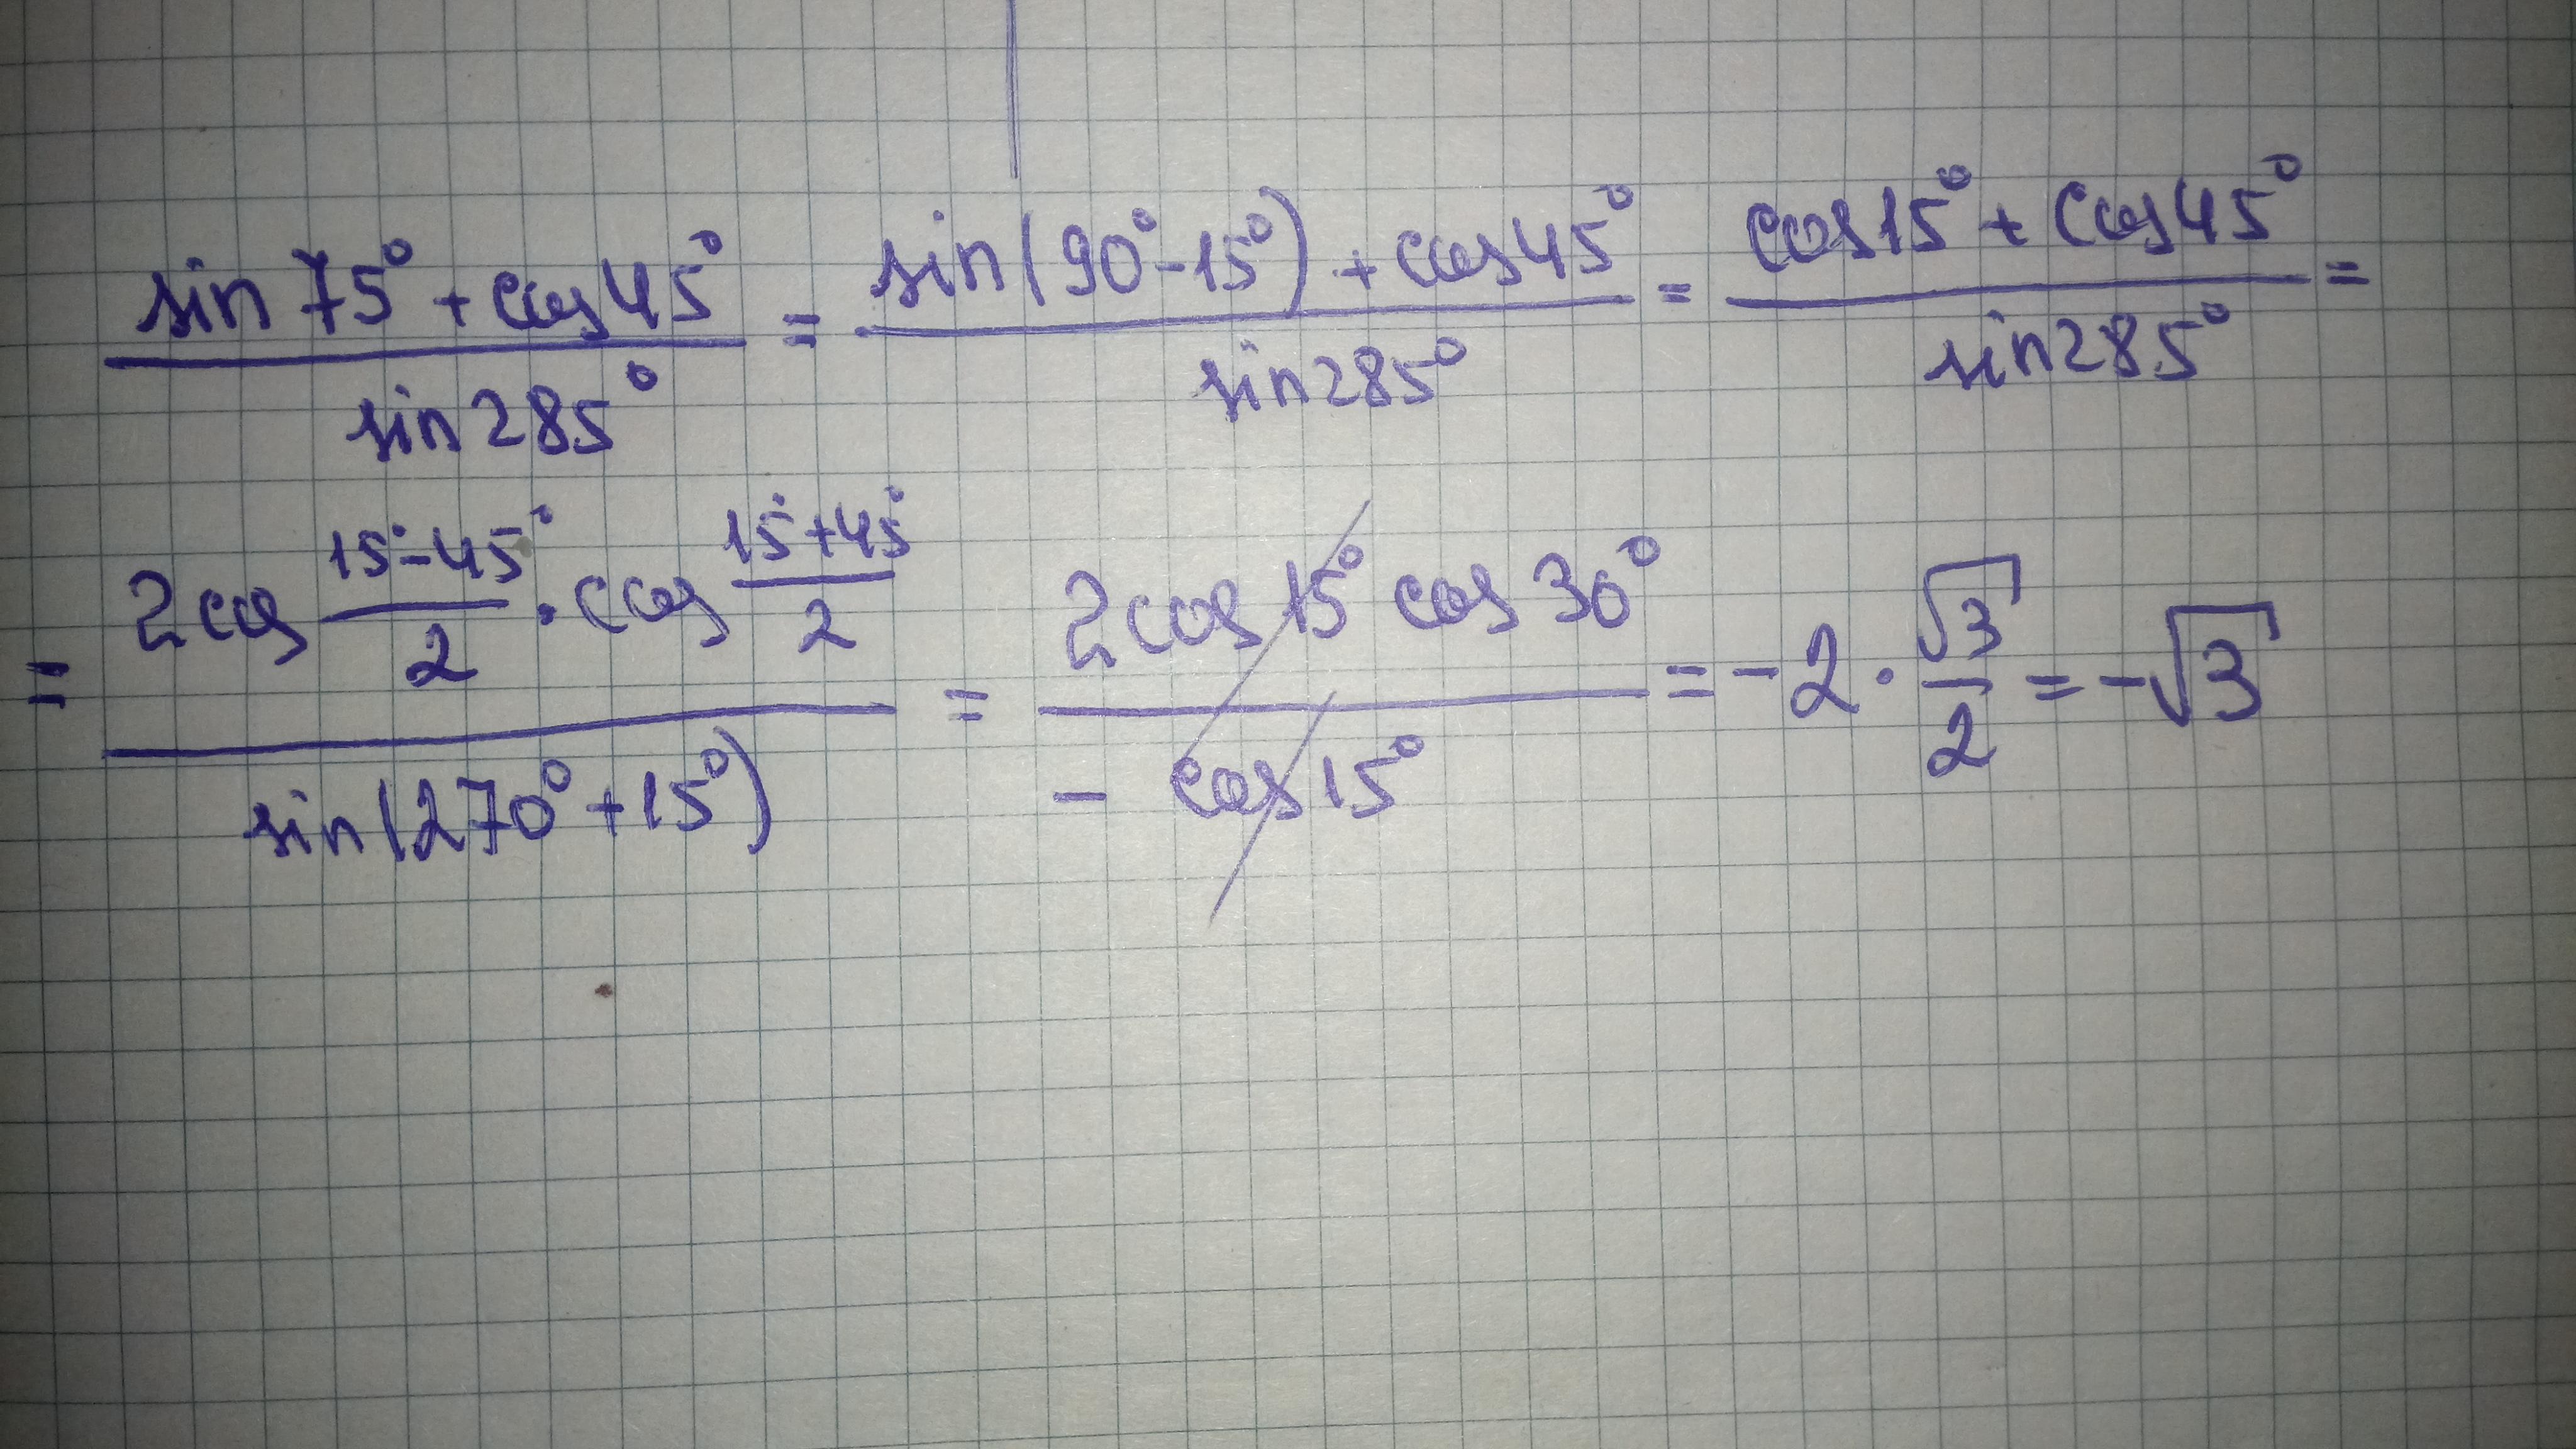 (sin 75° + cos 45°)/(sin 285°) = (sin(90° - 15°) + cos 45°)/(sin 285°) = (cos 15° + cos 45°)/(sin 285°) =
= (2 cos (15° - 45°)/2 · cos (15° + 45°)/2)/(sin(270° + 15°)) = (2 cos 15° cos 30°)/(- cos 15°) = -2 · √3/2 = -√3